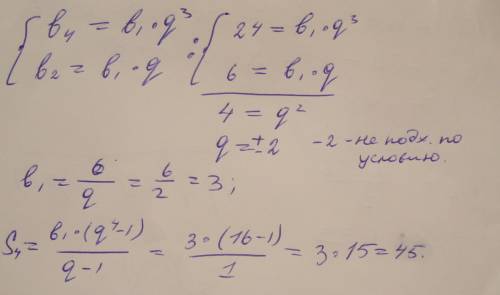 { b₄ = b₁ · q³ : { 24 = b₁ · q³
b₂ = b₁ · q 6 = b₁ · q
4 = q²
q = ±2 -2 - не подх. по
условию.
b₁ = 6/q = 6/2 = 3;
S₄ = b₁ · (q⁴-1)/q-1 = 3 · (16-1)/1 = 3 · 15 = 45.